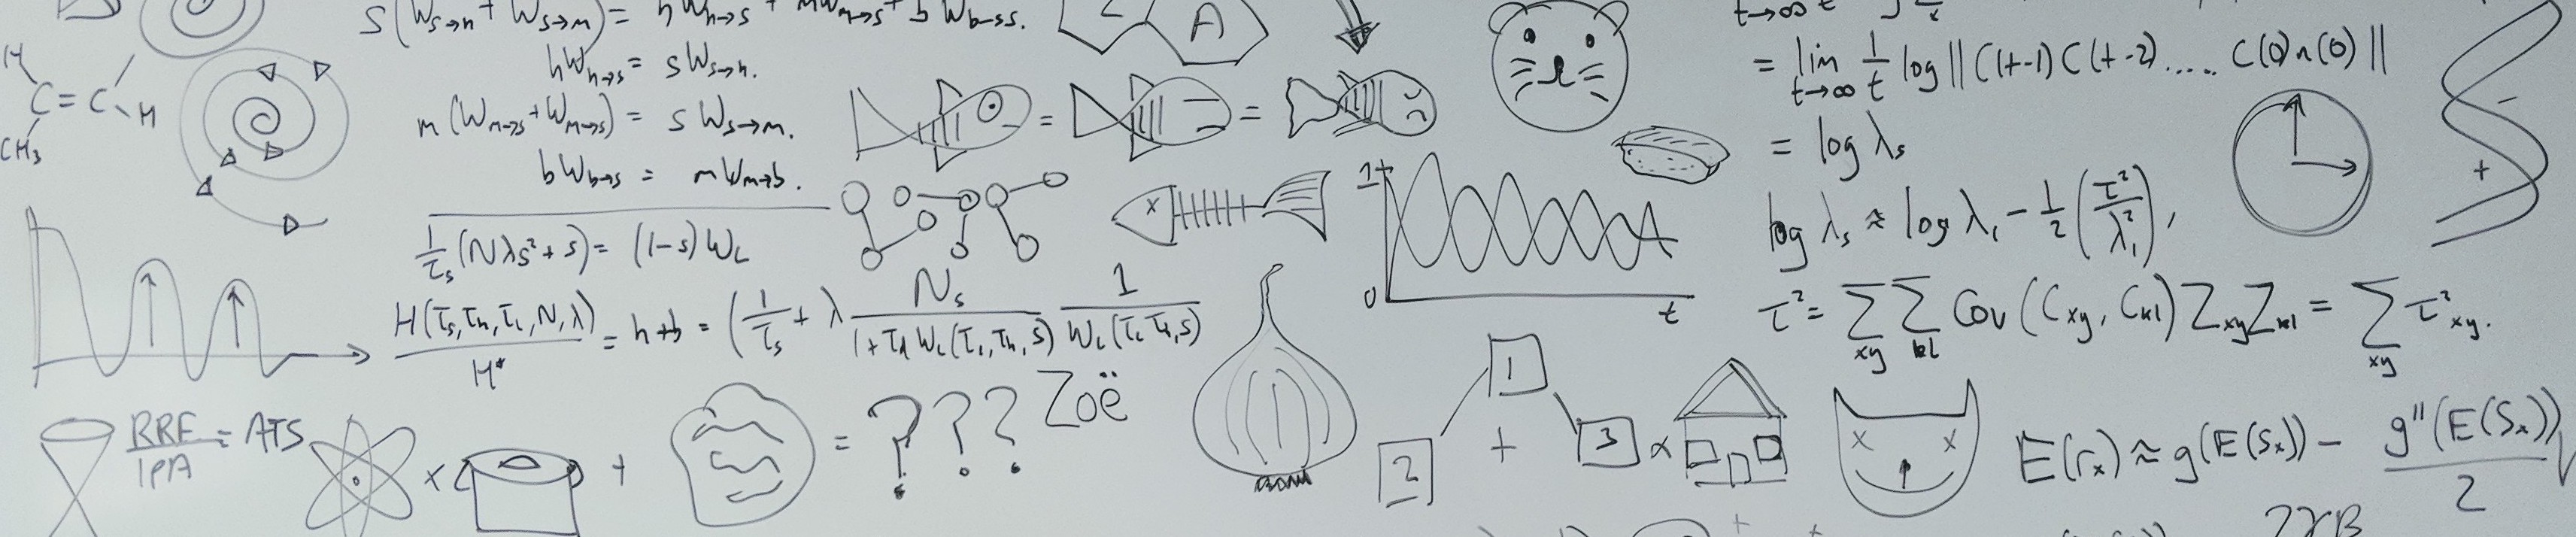 s(W_{s→h} + W_{s→m}) = hW_{h→s} + mW_{m→s} + bW_{b→s}.
hW_{h→s} = sW_{s→h}.
m(W_{m→s} + W_{m→s}) = sW_{s→m}.
bW_{b→s} = mW_{m→b}.
1/τ_s (Nλs² + s) = (1-s)W_L
H(τ_s, τ_h, τ_L, N, λ) / H* = h+b = (1/τ_s + λ N_s / (1+τ_λ W_L(τ_L, τ_h, s)) 1 / W_L(τ_L τ_h, s)
H
C=C
H
CH₃
RRF/IPA = ATS
x
+
= ???
Zoë
A
=
=
x
1
0
t
1
2
+
3
∝
x x
t→∞ t
= lim_{t→∞} 1/t log||C(t-1)C(t-2)..... C(0)n(0)||
= log λ_s
log λ_s ≈ log λ_1 - 1/2 (τ²/λ_1²),
τ² = Σ_{xy} Σ_{kl} Cov(C_{xy}, C_{kl}) Z_{xy} Z_{kl} = Σ_{xy} τ²_{xy}.
E(r_x) ≈ g(E(S_x)) - g''(E(S_x)) / 2
-
+